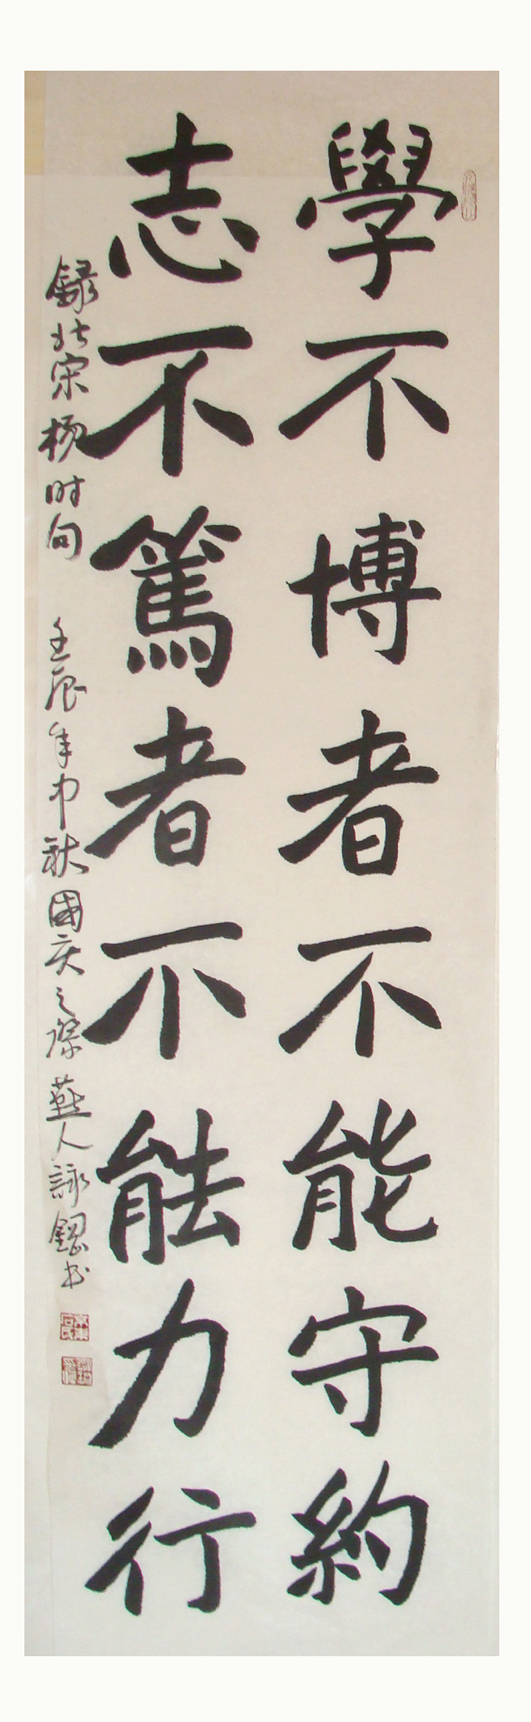 學不博者不能守約
志不篤者不能力行
録北宋楊时句 壬辰年中秋國庆之際燕人詠鋼书